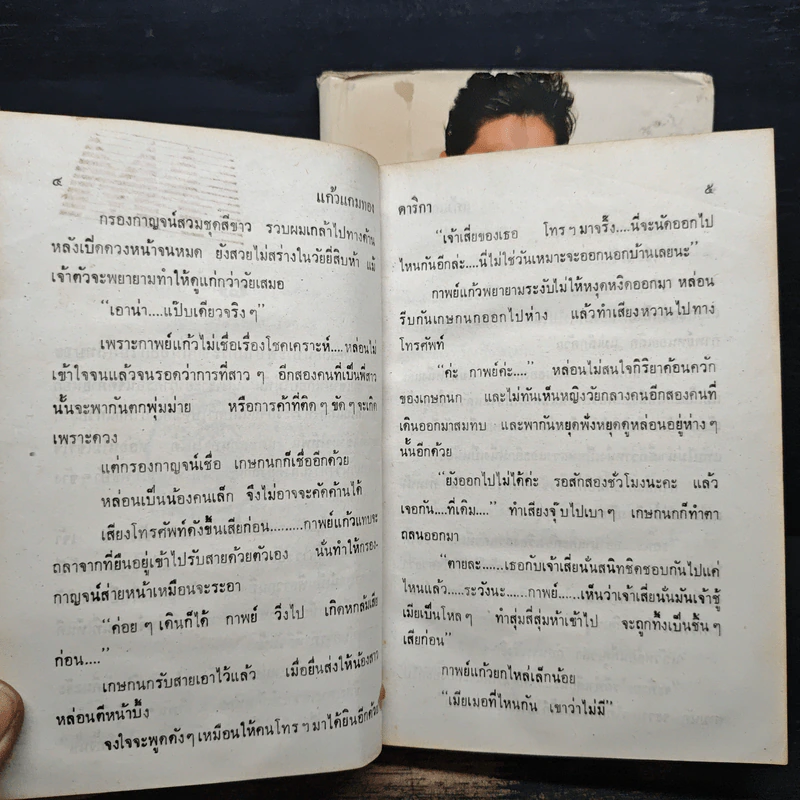 ๔
แก้วแกมทอง
กรองกาญจน์สวมชุดสีขาว รวบผมเกล้าไปทางด้าน
หลังเปิดดวงหน้าจนหมด ยังสวยไม่สร่างในวัยยี่สิบห้า แม้
เจ้าตัวจะพยายามทำให้ดูแก่กว่าวัยเสมอ
“เอาน่า....แป๊บเดียวจริง ๆ”
เพราะกาพย์แก้วไม่เชื่อเรื่องโชคเคราะห์....หล่อนไม่
เข้าใจจนแล้วจนรอดว่าการที่สาว ๆ อีกสองคนที่เป็นพี่สาว
นั้นจะพากันตกพุ่มม่าย หรือการค้าที่ติด ๆ ขัด ๆ จะเกิด
เพราะดวง
แต่กรองกาญจน์เชื่อ เกษกนกก็เชื่ออีกด้วย
หล่อนเป็นน้องคนเล็ก จึงไม่อาจจะคัดค้านได้
เสียงโทรศัพท์ดังขึ้นเสียก่อน.........กาพย์แก้วแทบจะ
ถลาจากที่ยืนอยู่เข้าไปรับสายด้วยตัวเอง นั่นทำให้กรอง-
กาญจน์ส่ายหน้าเหมือนจะระอา
“ค่อย ๆ เดินก็ได้ กาพย์ วิ่งไป เกิดหกล้มเสีย
ก่อน....”
เกษกนกรับสายเอาไว้แล้ว เมื่อยื่นส่งให้น้องสาว
หล่อนตีหน้าบึ้ง
จงใจจะพูดดังๆ เหมือนให้คนโทร ฯ มาได้ยินอีกด้วย
ดาริกา
๕
“เจ้าเสี่ยของเธอ โทร ฯ มาจริ๊ง....นี่จะนัดออกไป
ไหนกันอีกล่ะ....นี่ไม่ใช่วันเหมาะจะออกนอกบ้านเลยนะ”
กาพย์แก้วพยายามระงับไม่ให้หงุดหงิดออกมา หล่อน
รีบกันเกษกนกออกไปห่าง แล้วทำเสียงหวานไปทาง
โทรศัพท์
“ค่ะ กาพย์ค่ะ....” หล่อนไม่สนใจกิริยาค้อนควัก
ของเกษกนก และไม่ทันเห็นหญิงวัยกลางคนอีกสองคนที่
เดินออกมาสมทบ และพากันหยุดฟังหยุดดูหล่อนอยู่ห่าง ๆ
นั้นอีกด้วย
“ยังออกไปไม่ได้ค่ะ รอสักสองชั่วโมงนะคะ แล้ว
เจอกัน....ที่เดิม....” ทำเสียงจุ๊บไปเบาๆ เกษกนกก็ทำตา
ถลนออกมา
“ตายละ....เธอกับเจ้าเสี่ยนั่นสนิทชิดชอบกันไปแค่
ไหนแล้ว.....ระวังนะ.....กาพย์....เห็นว่าเจ้าเสี่ยนั่นมันเจ้าชู้
เมียเป็นโหลๆ ทำสุ่มสี่สุ่มห้าเข้าไป จะถูกทิ้งเป็นชิ้นๆ
เสียก่อน”
กาพย์แก้วยกไหล่เล็กน้อย
“เมียเมอที่ไหนกัน เขาว่าไม่มี”